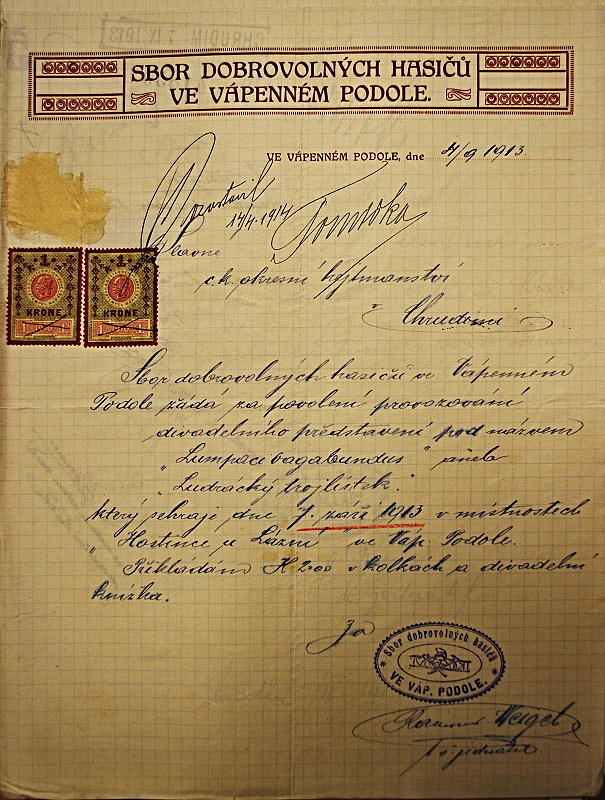 CHRUDIM 7 IX. 1913
SBOR DOBROVOLNÝCH HASIČŮ
VE VÁPENNÉM PODOLE.
VE VÁPENNÉM PODOLE, dne 4/9 1913.
14/4. 1914
Slavné
c. k. okresní hejtmanství
v Chrudimi
1 1
KRONE KRONE
1 1
Sbor dobrovolných hasičů ve Vápenném
Podole žádá za povolení provozování
divadelního představení pod názvem
„Lumpaci vagabundus" aneb
„Ludrácký trojlístek."
který sehraje dne 7. září 1913 v místnostech
„Hostince u Lázní" ve Váp. Podole.
Překládám K 2·00 v kolkách a divadelní
knížka.
Za
Sbor dobrovolných hasičů
VE VÁP. PODOLE.
Weigel
jednatel.